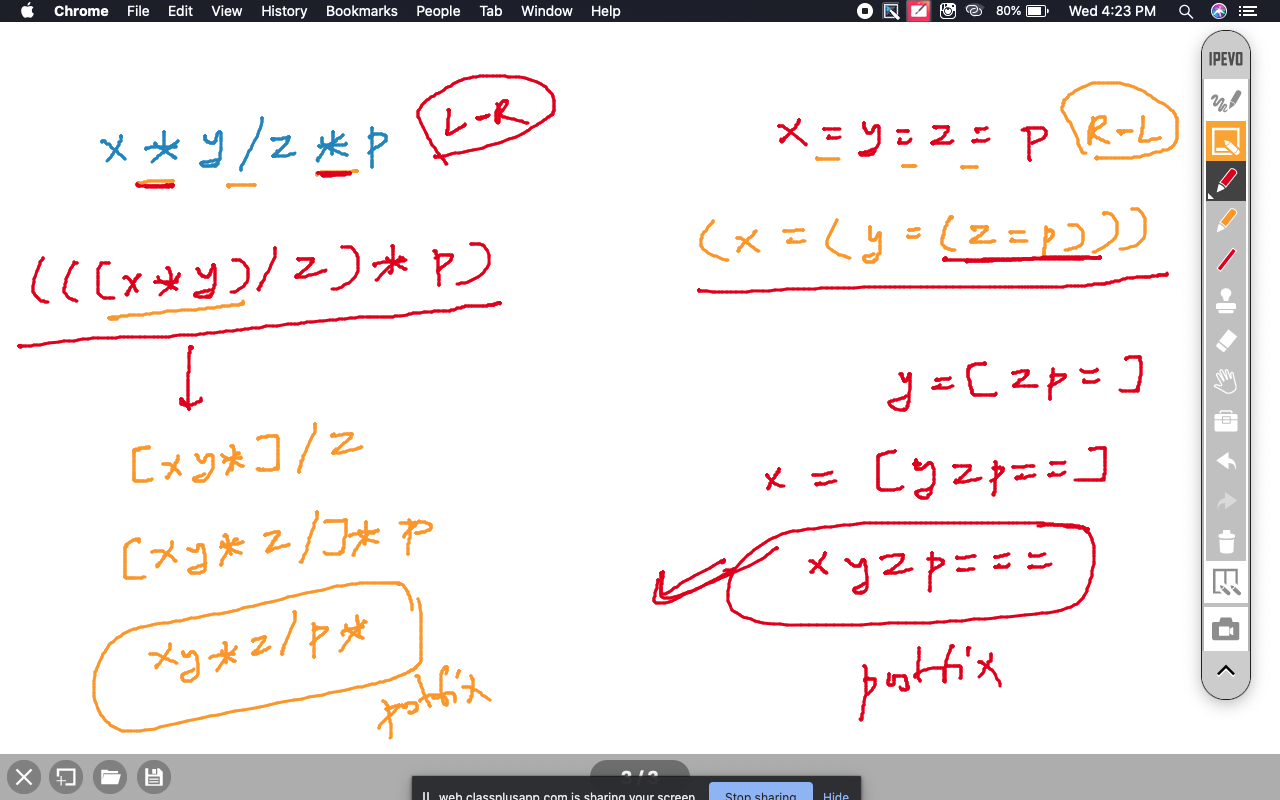 Chrome File Edit View History Bookmarks People Tab Window Help 80% Wed 4:23 PM
IPEVO
x * y / z * p
L-R
((([x*y)/z)*p)
[xy*]/z
[xy*z/]*p
xy*z/p*
postfix
x = y = z = p
R-L
(x=(y=(z=p)))
y=[zp=]
x = [yzp==]
xyzp===
postfix
3 / 3
web.classplusapp.com is sharing your screen. Stop sharing Hide